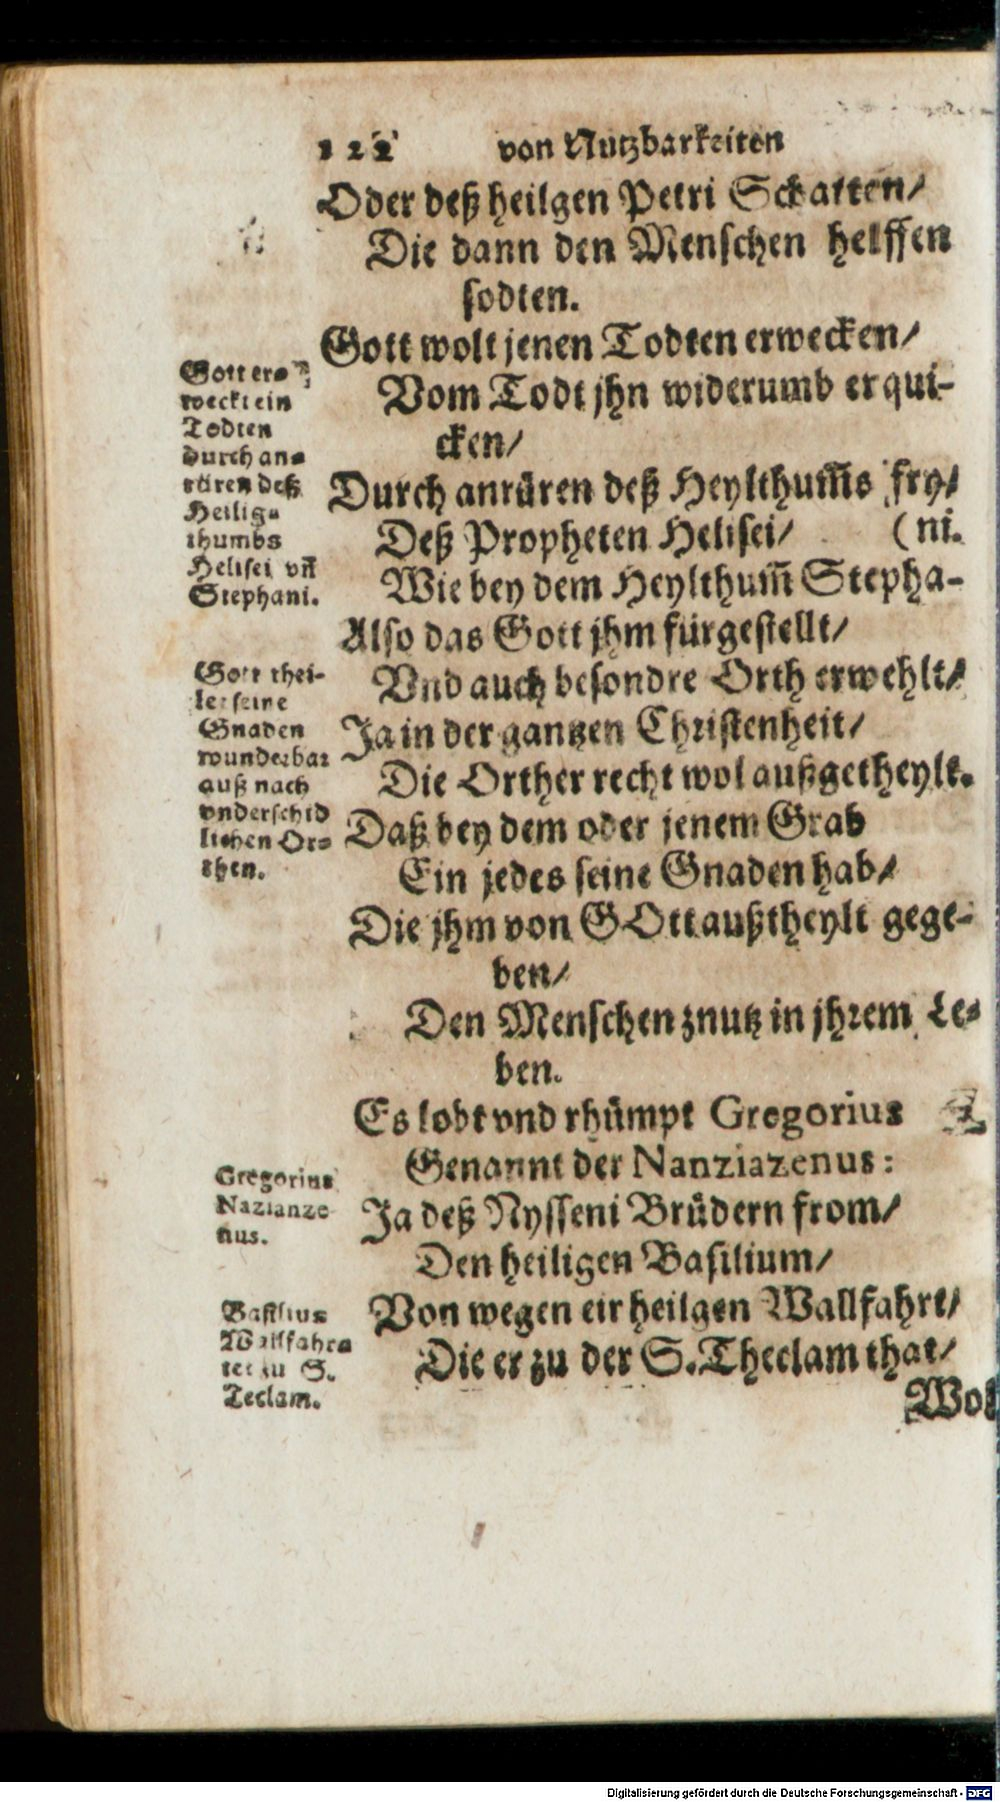 122 von Nutzbarkeiten
Oder deß heilgen Petri Schatten/
Die dann den Menschen helffen
sodten.
Gott wolt jenen Todten erwecken/
Vom Todt jhn widerumb erqui-
cken/
Durch anrüren deß Heylthum̄s fry/
Deß Propheten Helisei/ (ni.
Wie bey dem Heylthum̄ Stepha-
Also das Gott jhm fürgestellt/
Vnd auch besondre Orth erwehlt/
Ja in der gantzen Christenheit/
Die Orther recht wol außgetheylt.
Daß bey dem oder jenem Grab
Ein jedes seine Gnaden hab/
Die jhm von GOtt außtheylt gege-
ben/
Den Menschen znutz in jhrem Le-
ben.
Es lobt vnd rhümpt Gregorius
Genannt der Nanziazenus:
Ja deß Nysseni Brüdern from/
Den heiligen Basilium/
Von wegen eir heilgen Wallfahrt/
Die er zu der S. Theclam that/
Wol
Gott er-
weckt ein
Todten
durch an-
rüren deß
Heilig-
thumbs
Helisei vn̄
Stephani.
Gott thei-
let seine
Gnaden
wunderbar
auß nach
vnderschid
lichen Or-
then.
Gregorius
Nazianze
nus.
Basilius
Wallfahr-
tet zu S.
Teclam.
Digitalisierung gefördert durch die Deutsche Forschungsgemeinschaft - DFG